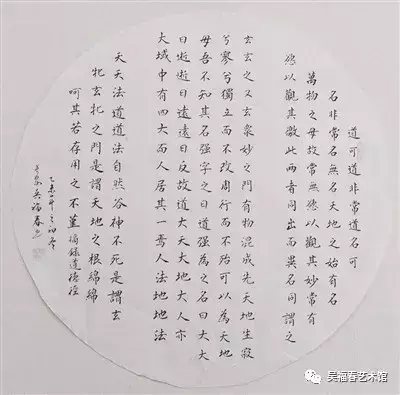 道可道非常道名可
名非常名無名天地之始有名
萬物之母故常無慾以觀其妙常有
慾以觀其徼此两者同出而異名同謂之
玄玄之又玄衆妙之門有物混成先天地生寂
兮寥兮獨立而不改周行而不殆可以為天地
母吾不知其名强字之曰道强為之名曰大大
曰逝逝曰遠遠曰反故道大天大地大人亦
大域中有四大而人居其一焉人法地地法
天天法道道法自然谷神不死是謂玄
牝玄牝之門是謂天地之根綿綿
呵其若存用之不堇 摘録道德經
乙未年之初冬
吴福春
吴福春艺术馆